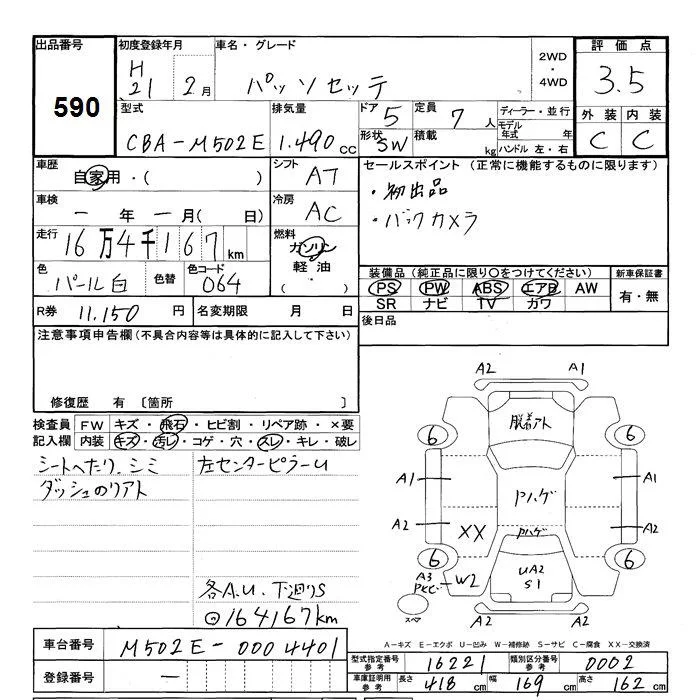 出品番号
590
初度登録年月
H21 2月
車名・グレード
パッソセッテ
2WD
・
4WD
評価点
3.5
外装 内装
C C
型式
CBA-M502E
排気量
1.490cc
ドア 5
定員 7人
ディーラー・並行
モデル年式 年
形状 SW
積載 kg
ハンドル 左・右
車歴
自家用・( )
シフト AT
車検
ー年ー月( 日)
冷房 AC
走行
16万4千167km
燃料
ガソリン
軽油
・( )
色
パール白
色替
色コード
064
R券 11.150円
名変期限 月 日
セールスポイント (正常に機能するものに限ります)
・初出品
・バックカメラ
装備品(純正品に限り○をつけてください)
PS PW ABS エアB AW
SR ナビ TV カワ
新車保証書
有・無
後日品
注意事項申告欄(不具合内容等は具体的に記入して下さい)
修復歴 有 〔箇所
検査員記入欄
FW キズ・飛石・ヒビ割・リペア跡・×要
内装 キズ・汚レ・コゲ・穴・スレ・キレ・破レ
シートへたり、シミ
ダッシュのリアト
左センターピラーU
各A.U.下廻りS
⊙164167km
A2 A1
脱着アト
6 6
A1 A1
Pハゲ
A2 A2
XX Pハゲ
6 6
A3
W2
UA2
S1
スペア
A2 A2
A-キズ E-エクボ U-凹み W-補修跡 S-サビ C-腐食 XX-交換済
車台番号 M502E-0004401
登録番号 ー
型式指定番号 参考 16221
類別区分番号 参考 0002
車庫証明用 参考 長さ 418cm 幅 169cm 高さ 162cm